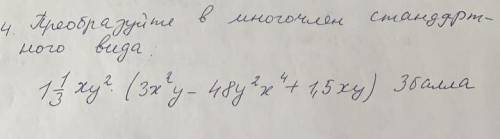 4. Преобразуйте в многочлен стандарт-
ного вида:
1 1/3 xy² · (3x²y - 48y²x⁴ + 1,5xy) 3балла